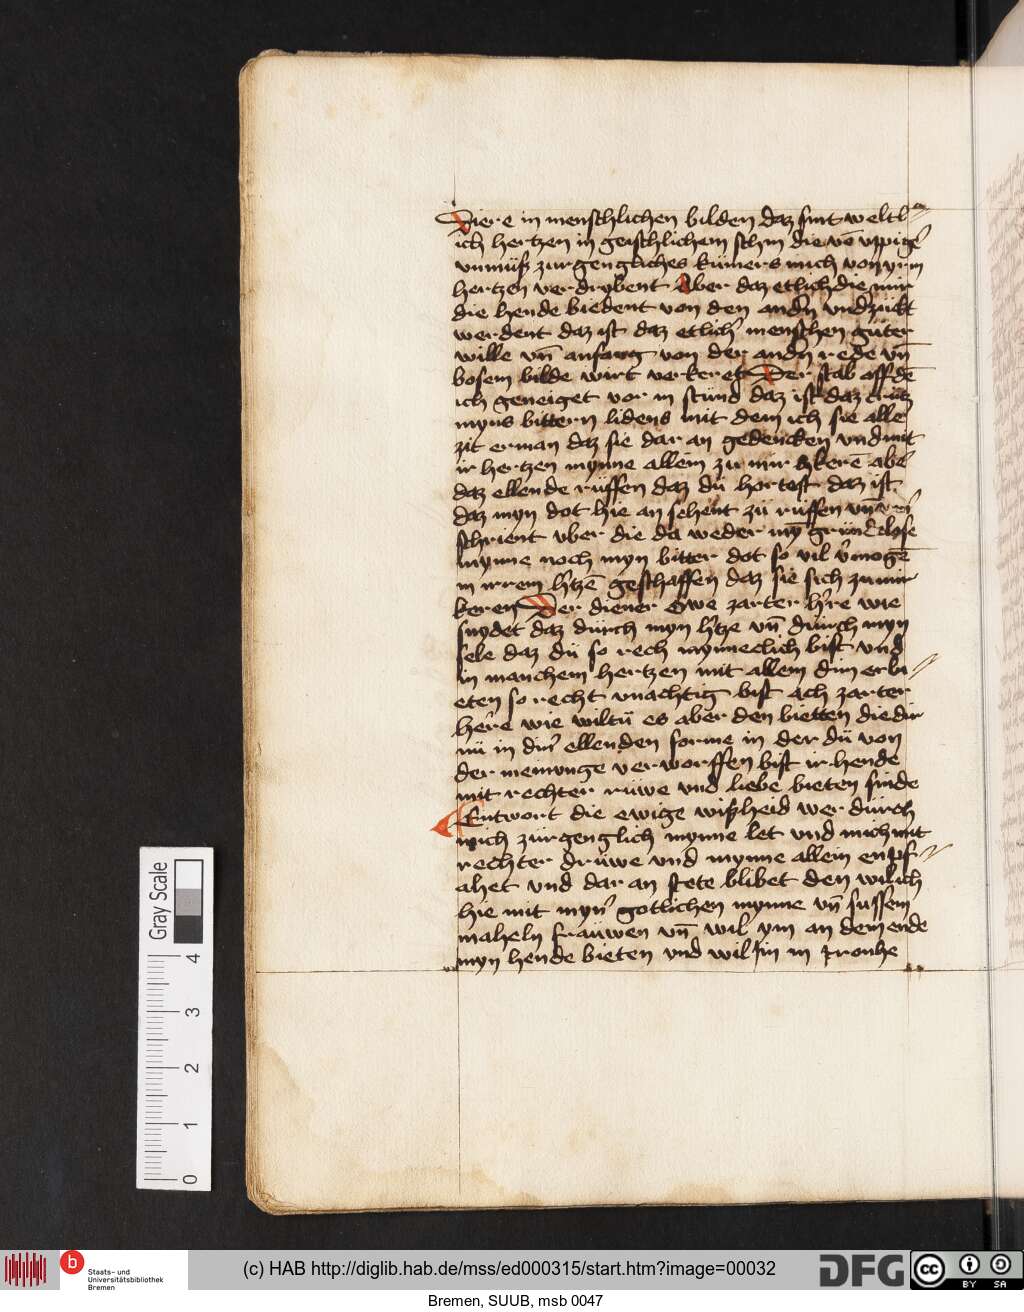 Diere in menschlichen bilden daz sint weltl
ich hertzen in geischlichem schin die vō vppigē
vnmüß zurgengliches kümers mich von yrm
hertzen verdrybent Aber daz etlich die mir
die hende biedent von den andn̄ vnd zückt
werdent daz ist daz etlich' menschen güter
wille vn̄ anfang von der andn̄ rede vn̄
bosem bilde wirt verkeret Der stab off dē
ich geneiget vor in stünd daz ist daz crütz
myns bittern lidens mit dem ich sie alle
zit erman daz sie dar an gedencken vnd mit
ir hertzen mynne allein zu mir kerē abe'
daz ellende rüffen daz dü hortest daz ist
daz myn dot hie an sehent zü rüffen vn̄
schrient vber die da weder mȳ gründelose
mynne noch myn bitter dot so vil v'mogē
in irrem h'tzē geschaffen daz sie sich zu mir
keren Der diener Owe zarter h're wie
snydet daz dürch myn h'tze vn̄ dürch myn
sele daz dü so rech mynneclich bist vnd
in manchem hertzen mit allem dim erbi
eten so recht vnachtig bist ach zarter
he're wie wiltü es aber den bietten die dir
nü in din' ellenden forme in der dü von
der meinunge verworffen bist ir hende
mit rechter rüwe vnd liebe bieten sinde
Entwort die ewige wißheid wer dürch
mich zürgenglich mynne let vnd mich mit
rechter drüwe vnd mynne allein enpf
ahet vnd dar an stete blibet den wil ich
hie mit myn' gotlichen mynne vn̄ süssem
maheln fraüwen vn̄ wil ym an dem ende
myn hende bieten vnd wil sin in
Gray Scale
4
3
2
1
0
b
Staats- und
Universitätsbibliothek
Bremen
(c) HAB http://diglib.hab.de/mss/ed000315/start.htm?image=00032
DFG
cc
BY SA
Bremen, SUUB, msb 0047